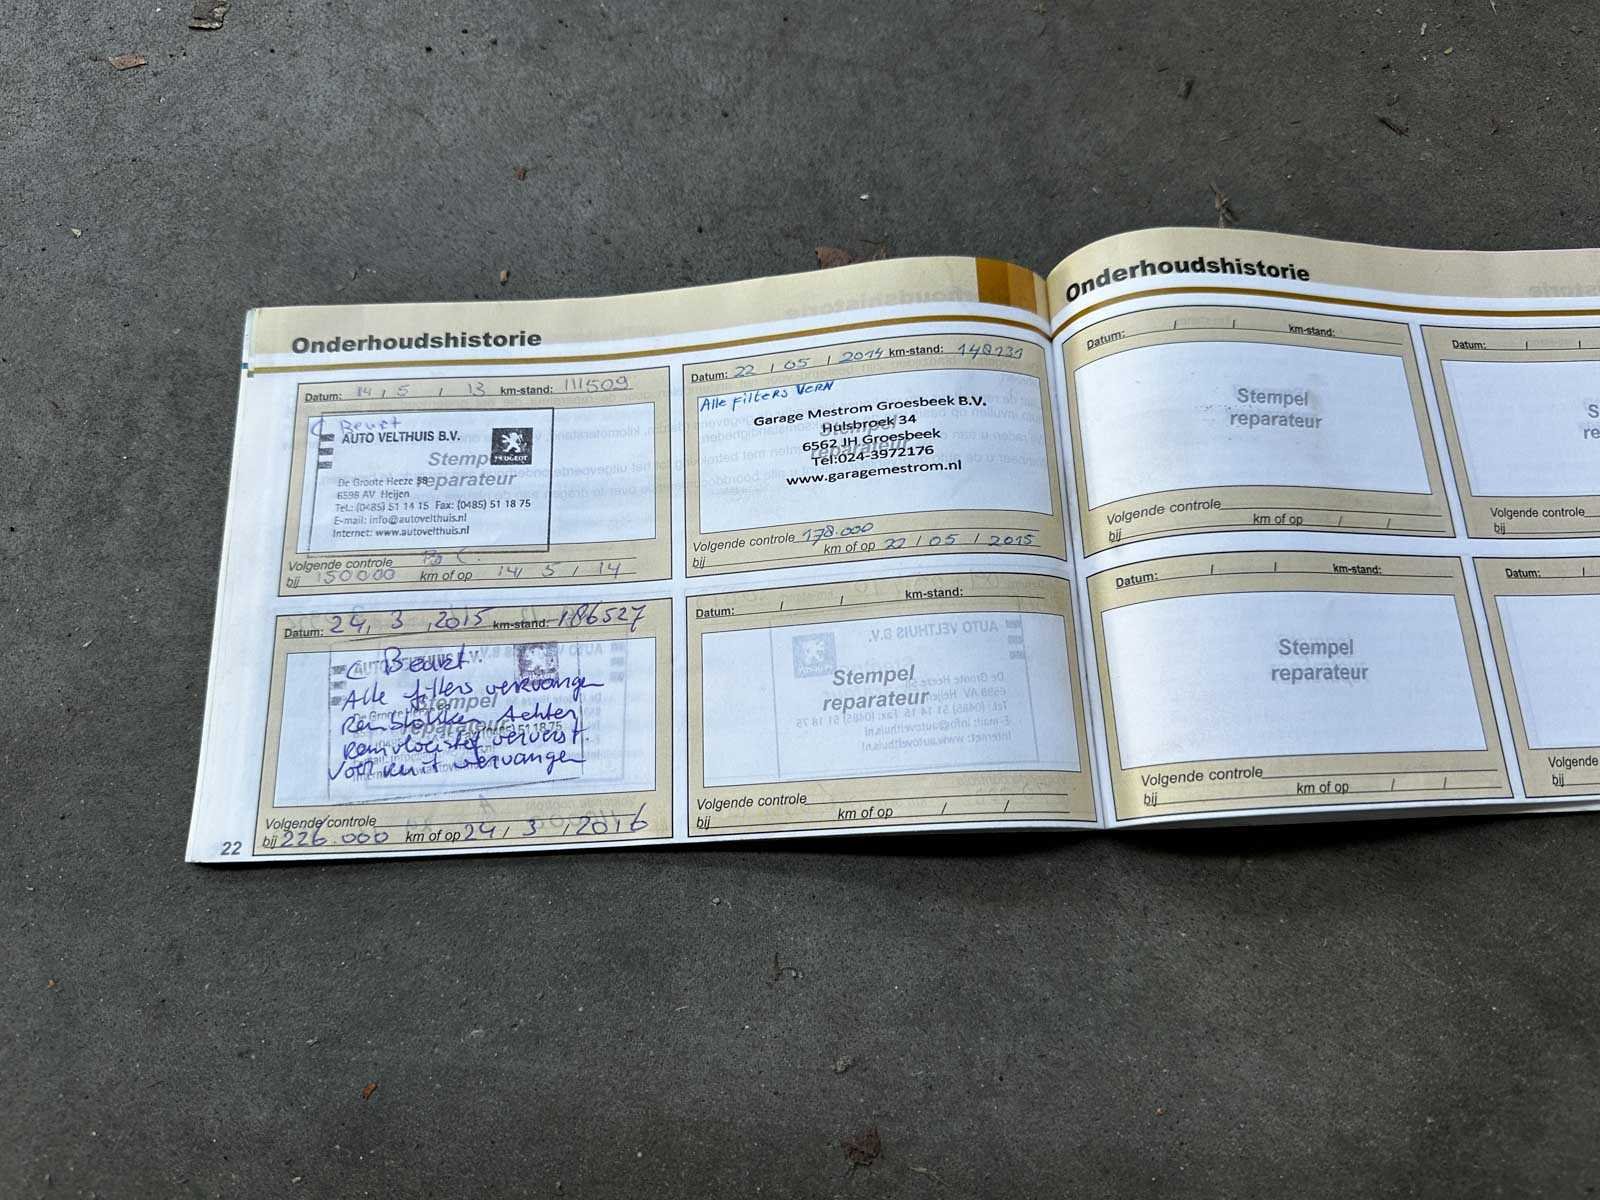 Onderhoudshistorie
Datum: 14 / 5 / 13 km-stand: 111509
C Beurt
AUTO VELTHUIS B.V.
PEUGEOT
Stempel
reparateur
De Groote Heeze 58
6598 AV Heijen
Tel.: (0485) 51 14 15 Fax: (0485) 51 18 75
E-mail: info@autovelthuis.nl
Internet: www.autovelthuis.nl
Volgende controle C
bij 150000 km of op 14 / 5 / 14
Datum: 22 / 05 / 2014 km-stand: 148131
Alle filters vern
Garage Mestrom Groesbeek B.V.
Hulsbroek 34
6562 JH Groesbeek
Tel:024-3972176
www.garagemestrom.nl
Stempel
reparateur
Volgende controle 178.000
km of op 22 / 05 / 2015
Datum: 24 / 3 / 2015 km-stand: 186527
C Beurt
AUTO VELTHUIS B.V.
Alle filters vervangen
Stempel
Remblokken Achter
reparateur
51 18 75
Remvloeistof ververst.
Voorruit vervangen
Volgende controle
bij 226.000 km of op 24 / 3 / 2016
Datum: / / km-stand:
Stempel
reparateur
Volgende controle
bij km of op / /
22
Onderhoudshistorie
Datum: / / km-stand:
Stempel
reparateur
Volgende controle
bij km of op / /
Datum: / /
S
re
Volgende controle
bij
Datum: / / km-stand:
Stempel
reparateur
Volgende controle
bij km of op / /
Datum: /
Volgende
bij